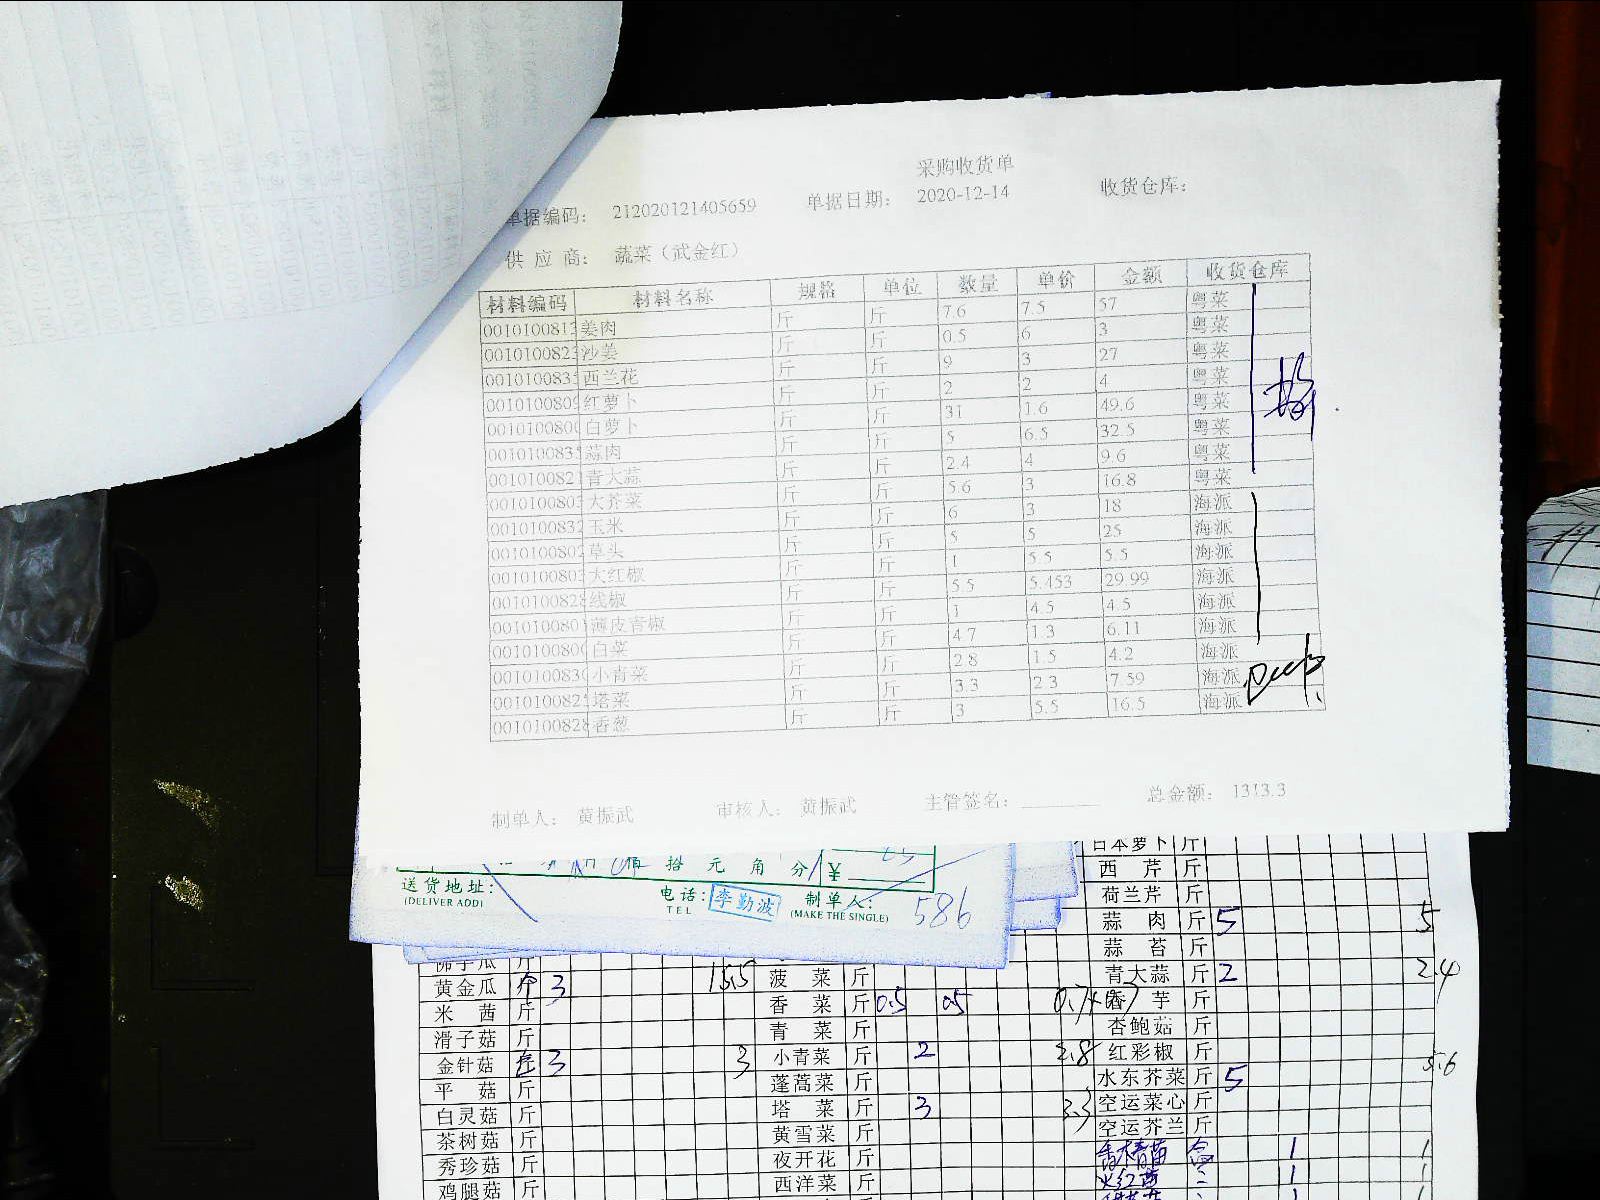 采购收货单
单据编码： 212020121405659 单据日期： 2020-12-14 收货仓库：
供 应 商： 蔬菜（武金红）
材料编码 材料名称 规格 单位 数量 单价 金额 收货仓库
001010081 姜肉 斤 斤 7.6 7.5 57 粤菜
001010082 沙姜 斤 斤 0.5 6 3 粤菜
001010083 西兰花 斤 斤 9 3 27 粤菜
001010080 红萝卜 斤 斤 2 2 4 粤菜
001010080 白萝卜 斤 斤 31 1.6 49.6 粤菜
001010083 蒜肉 斤 斤 5 6.5 32.5 粤菜
001010082 青大蒜 斤 斤 2.4 4 9.6 粤菜
001010080 大芥菜 斤 斤 5.6 3 16.8 粤菜
001010083 玉米 斤 斤 6 3 18 海派
001010080 草头 斤 斤 5 5 25 海派
001010080 大红椒 斤 斤 1 5.5 5.5 海派
001010082 线椒 斤 斤 5.5 5.453 29.99 海派
001010080 薄皮青椒 斤 斤 1 4.5 4.5 海派
001010080 白菜 斤 斤 4.7 1.3 6.11 海派
001010083 小青菜 斤 斤 2.8 1.5 4.2 海派
001010082 塔菜 斤 斤 3.3 2.3 7.59 海派
001010082 香葱 斤 斤 3 5.5 16.5 海派
制单人： 黄振武 审核人： 黄振武 主管签名： 总金额： 1313.3
佰 拾 元 角 分 ¥
送货地址： 电话： 李勤波 制单人： 586
(DELIVER ADD) TEL (MAKE THE SINGLE)
日本萝卜 斤
西 芹 斤
荷兰芹 斤
蒜 肉 斤 5 5
蒜 苔 斤
佛手瓜 斤
黄金瓜 个 3 15.5 菠 菜 斤 青大蒜 斤 2 2.4
米 茜 斤 香 菜 斤 0.5 0.5 香 芋 斤
滑子菇 斤 青 菜 斤 杏鲍菇 斤
金针菇 3 3 小青菜 斤 2 2.8 红彩椒 斤
平 菇 斤 蓬蒿菜 斤 水东芥菜 斤 5 5.6
白灵菇 斤 塔 菜 斤 3 3.3 空运菜心 斤
茶树菇 斤 黄雪菜 斤 空运芥兰 斤
秀珍菇 斤 夜开花 斤 盒 1 1
鸡腿菇 斤 西洋菜 斤 1 1